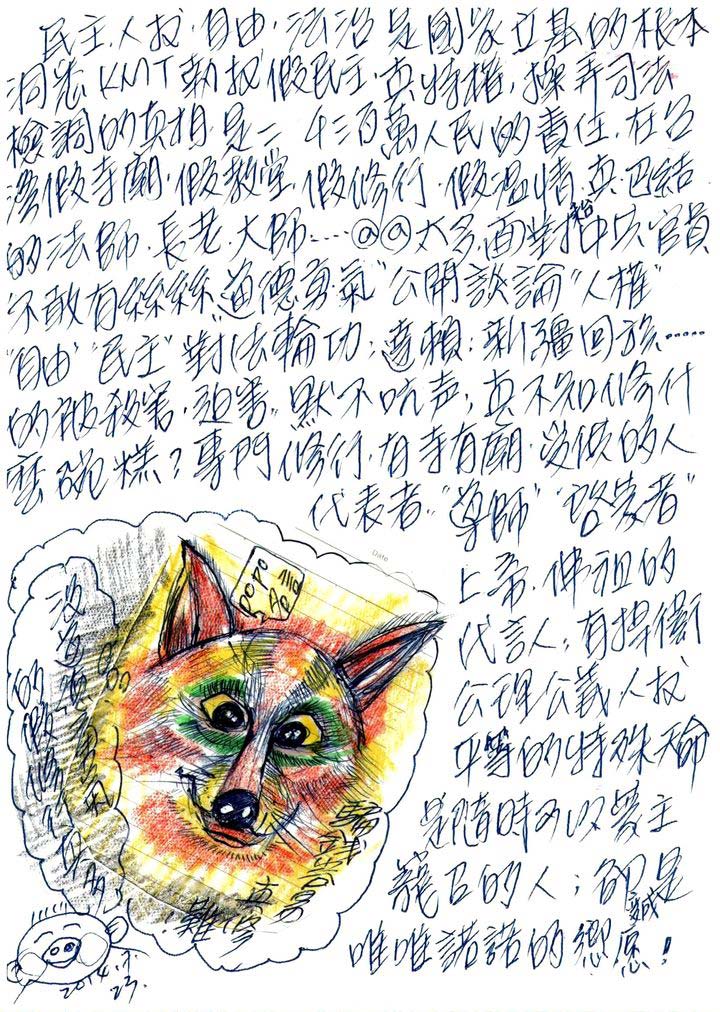 民主.人权.自由.法治 是國家立基的根本
洞悉 KMT 執权假民主.真特權,操弄司法
檢調的真相.是二千三百萬人民的責任.在台
灣假寺廟.假教堂.假修行.假溫情.真巴結
的法師.長老.大師……@@太多.面對中共官員
不敢有絲絲"道德勇氣"公開談論"人權"
"自由""民主"對法輪功;達賴;新疆回族……
的被殺害.迫害.默不吭声;真不知修什
麼碗糕?專門修行.有寺有廟.沒做的人
代表者."導師""啓蒙者"
上帝.佛祖的
代言人;有捍衛
公理公義人权
平等的特殊天命
是隨時可以蒙主
寵召的人;卻是變成
唯唯諾諾的鄉愿!
Date
popo
沒道德勇氣
的假修行太多
真
難修
2014.
23.